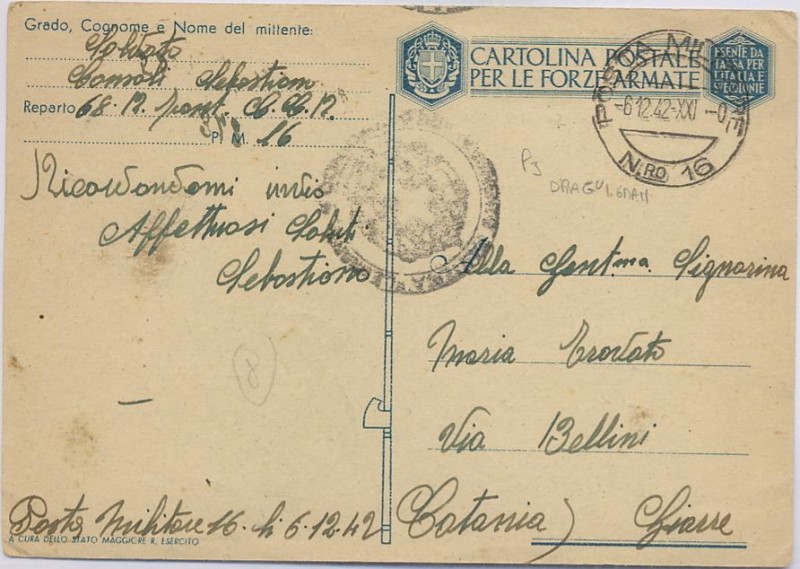 Grado, Cognome e Nome del mittente:
Soldato
Consoli Sebastiano
Reparto 68. B.
P. M. 16
Ricordandomi invio
Affettuosi Saluti
Sebastiano
8
Posta Militare 16. li 6.12.42
A CURA DELLO STATO MAGGIORE R. ESERCITO
CARTOLINA POSTALE
PER LE FORZE ARMATE
ESENTE DA
TASSA PER
L'ITALIA E
LE COLONIE
POSTA MILITARE
-6.12.42-XXI
N.RO 16
Alla Gent.ma Signorina
Maria Trovato
Via Bellini
Catania) Giarre